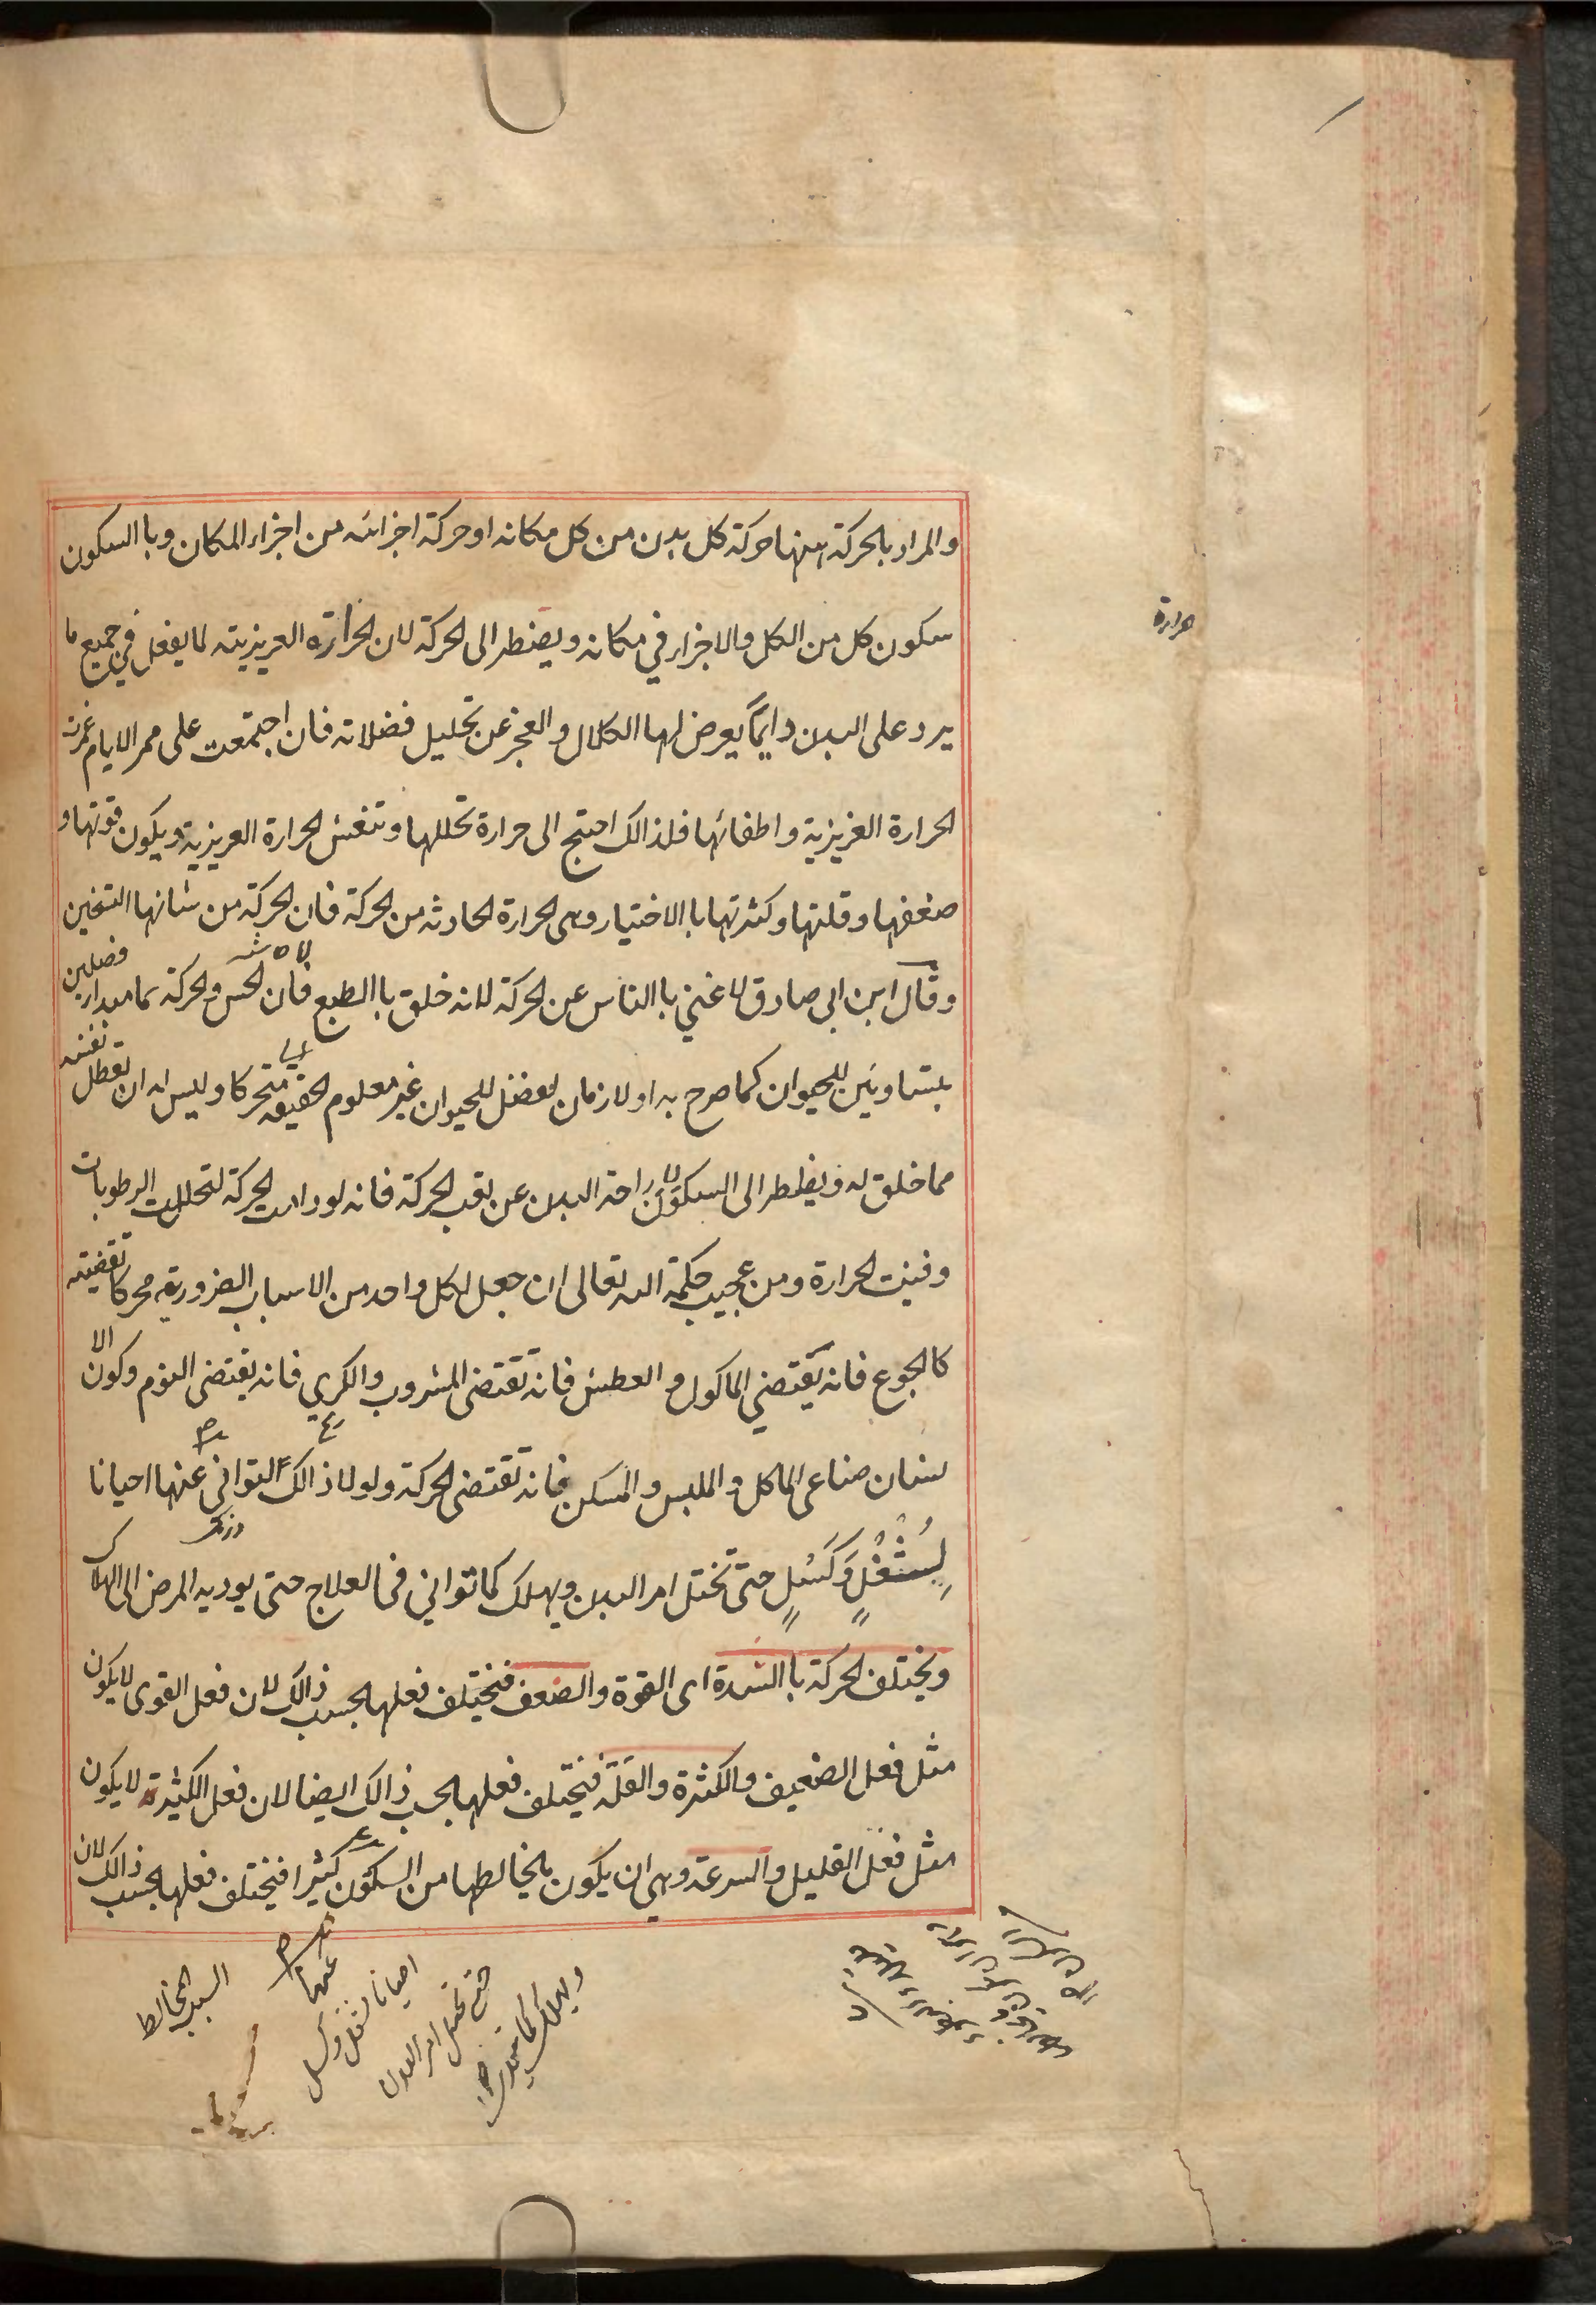 والمراد بالحركة ههنا حركة كل بدن من كل مكانه او حركة اجزائه من اجزاء المكان وبا السكون
سكون كل من الكل والاجزاء في مكانه ويضطر الى الحركة لان الحرارة الغريزيته لما يفعل في جميع ما
يرد على البدن دايمًا يعرض لها الكلال والعجز عن تحليل فضلاته فان اجتمعت على ممر الايام غمرت
الحرارة الغزيزية واطفائها فلذالك احتج الى حرارة تحللها وتنغش الحرارة العريزية ويكون قوتها و
ضعفها وقلتها وكثرتها باالاختيار وهى الحرارة الحادثه من الحركة فان الحركة من شانها التسخين
وقال ابن ابي صادق لا غني باالناس عن الحركة لانه خلق باالطبع فان الحس والحركة كما مبدا فصلين
بمتساويين للحيوان كما صرح به او لازمان لفضل للحيوان غير معلوم الحقيقه متحركا وليس له ان يعطل نفسه
مما خلق له ويظطر الى السكون لا راحة البدن عن تعب الحركة فانه لو دامت الحركة لتحللت الرطوبات
وفنيت الحرارة ومن عجيب حكمة الله تعالى ان جعل لكل واحد من الاسباب الضروريه محركا تقضيته
كالجوع فانه يقتضي الماكول والعطش فانه تقتضى المشروب والكري فانه يقتضى النوم وكون الا
نسان صناعى الماكل والملبس والمسكن فانه تقتضى الحركة ولولا ذالك التواني عنها احيانا
لِشُغْلٍ وَكَسَلٍ حتى تختل امر البدن ويهلك كما تواني فى العلاج حتى يوديه المرض الى الهلاك
ويختلف الحركة باالشدة اى القوة والضعف فيختلف فعلها بحسب ذالك لان فعل القوى لا يكون
مثل فعل الضعيف والكثرة والقلة فيختلف فعلها بحسب ذالك ايضا لان فعل الكثيرة لا يكون
مثل فعل القليل والسرعة وهى ان يكون ما يخالطها من السكون كثيرا فيختلف فعلها بحسب ذالك لان
حرارة
عنها
احيانا لشغل وكسل
حتى تختل امر البدن
ويهلك كما